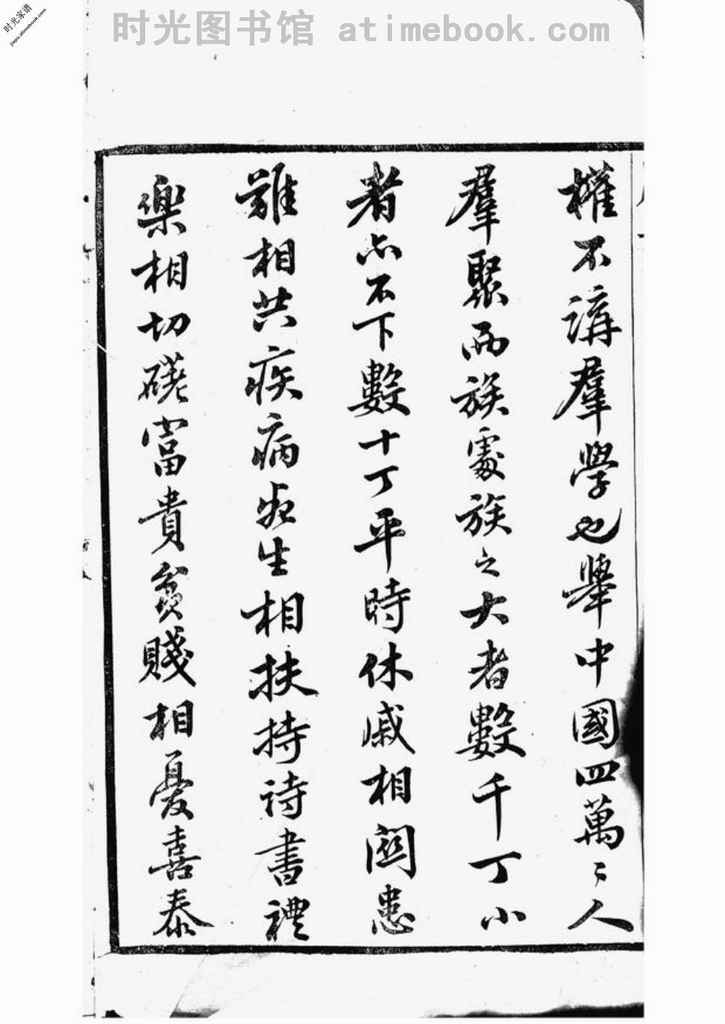 时光图书馆 atimebook.com
时光家谱
權不講羣學也舉中國四萬〻人
羣聚而族處族之大者數千丁小
者亦不下數十丁平時休戚相關患
難相共疾病死生相扶持詩書禮
樂相切磋富貴貧賤相憂喜泰